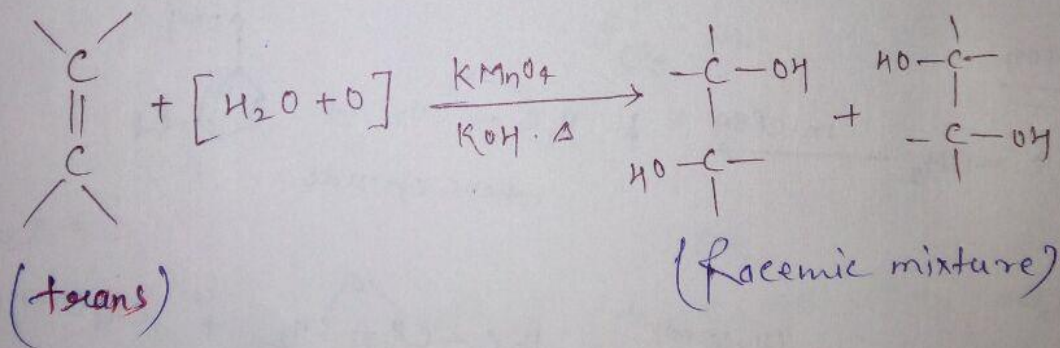 C
||
C
+ [H₂O + O]
KMnO₄
KOH · Δ
-C-OH
HO-C-
+
HO-C-
-C-OH
(trans)
(Racemic mixture)